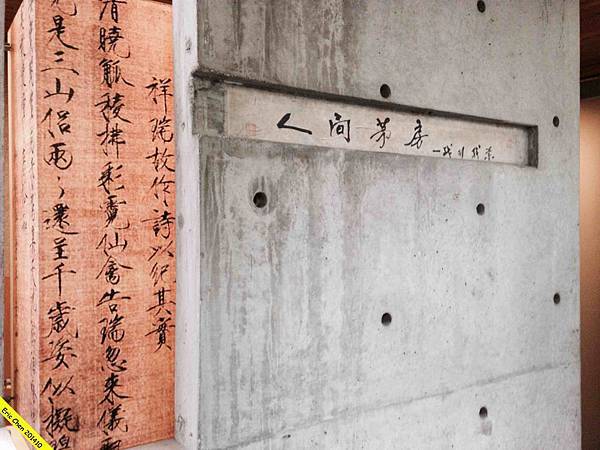 祥瑞故作詩以紀其實
清曉觚稜拂彩霓仙禽告瑞忽來儀飄
元是三山侶兩〻還呈千歲姿似擬碧
人間茅房
Eric Chen 201410